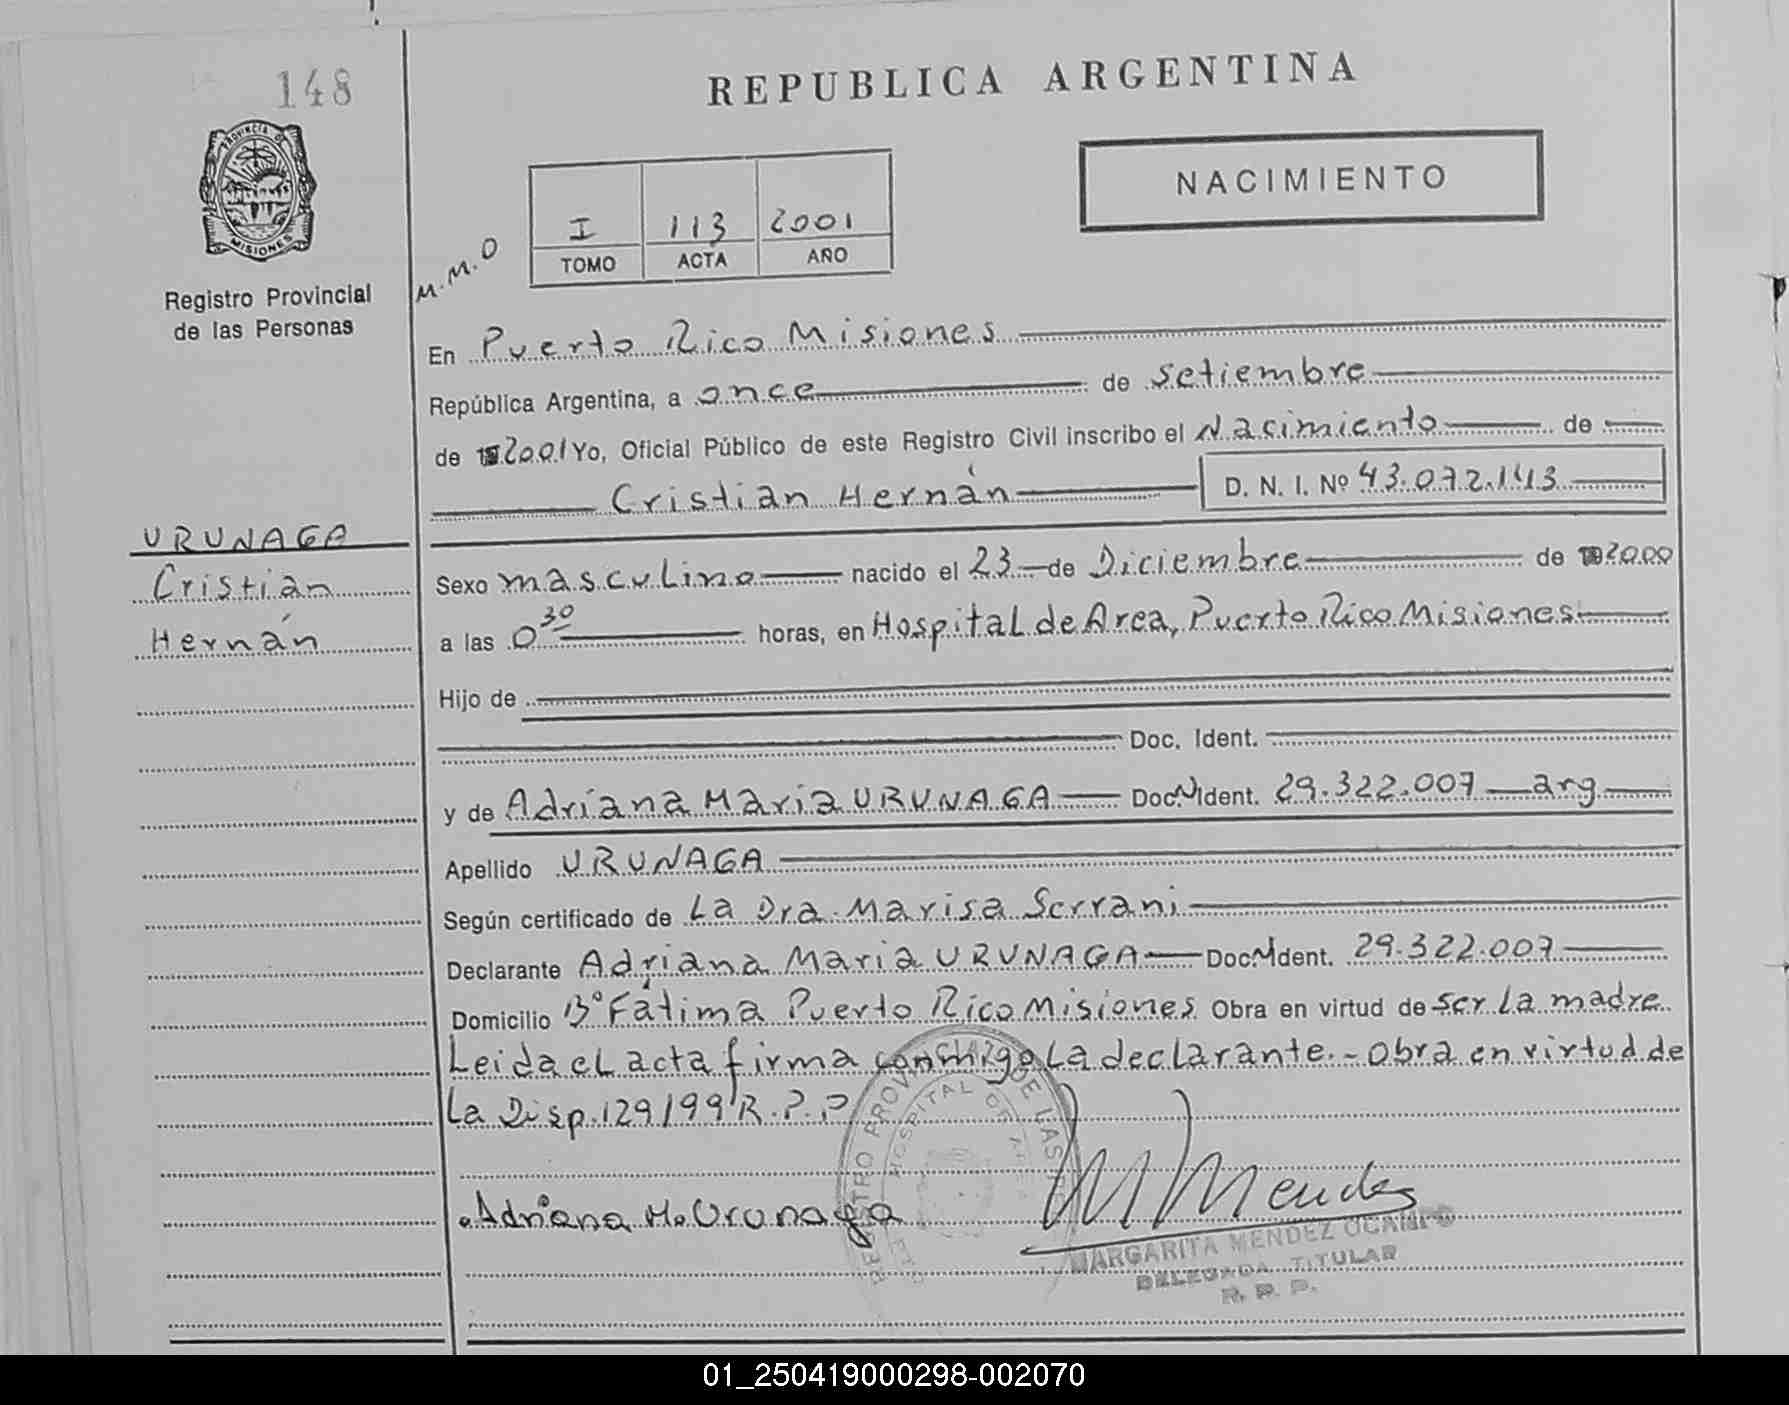 148
REPUBLICA ARGENTINA
PROVINCIA DE
MISIONES
NACIMIENTO
I 113 2001
TOMO ACTA AÑO
M.M.O
Registro Provincial
de las Personas
En Puerto Rico Misiones
República Argentina, a once de setiembre
de 2001 Yo, Oficial Público de este Registro Civil inscribo el Nacimiento de
Cristian Hernán D. N. I. Nº 43.072.143
URUNAGA
Cristian
Hernán
Sexo masculino nacido el 23 de Diciembre de 2000
a las 0 30 horas, en Hospital de Area, Puerto Rico Misiones
Hijo de
Doc. Ident.
y de Adriana Maria URUNAGA Doc.N Ident. 29.322.007 arg
Apellido URUNAGA
Según certificado de La Dra. Marisa Serrani
Declarante Adriana Maria URUNAGA Doc.N Ident. 29.322.007
Domicilio Bº Fátima Puerto Rico Misiones Obra en virtud de ser La madre
Leida el acta firma conmigo La declarante.- Obra en virtud de
La Disp. 129/99 R.P.P
Adriana M. Urunaga
M Mendez
MARGARITA MENDEZ OCAMPO
DELEGADA TITULAR
R. P. P.
01_250419000298-002070